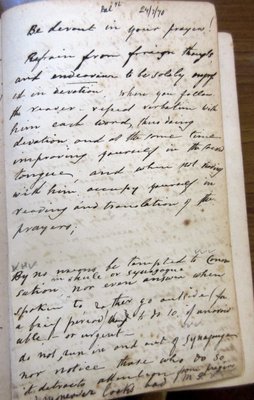 24/7/70
Be devout in your prayers!
Refrain from foreign thought
and endeavour to be solely engag
ed in devotion when you follow
the reader. repeat verbatim with
him each word, thus being
devotion and at the same time
improving yourself in the sacred
tongue, and where not reading
with him, occupy yourself in
reading and translation of the
prayers;
By no means be tempted to Conver
in shule or Synagogue
sation nor even answer when
spoken to rather go outside (for
a brief period) 5 to 10. if answer
able or urgent
do not run in and out of Synagogue
nor notice those who do so
it detracts attention from prayers
looks bad